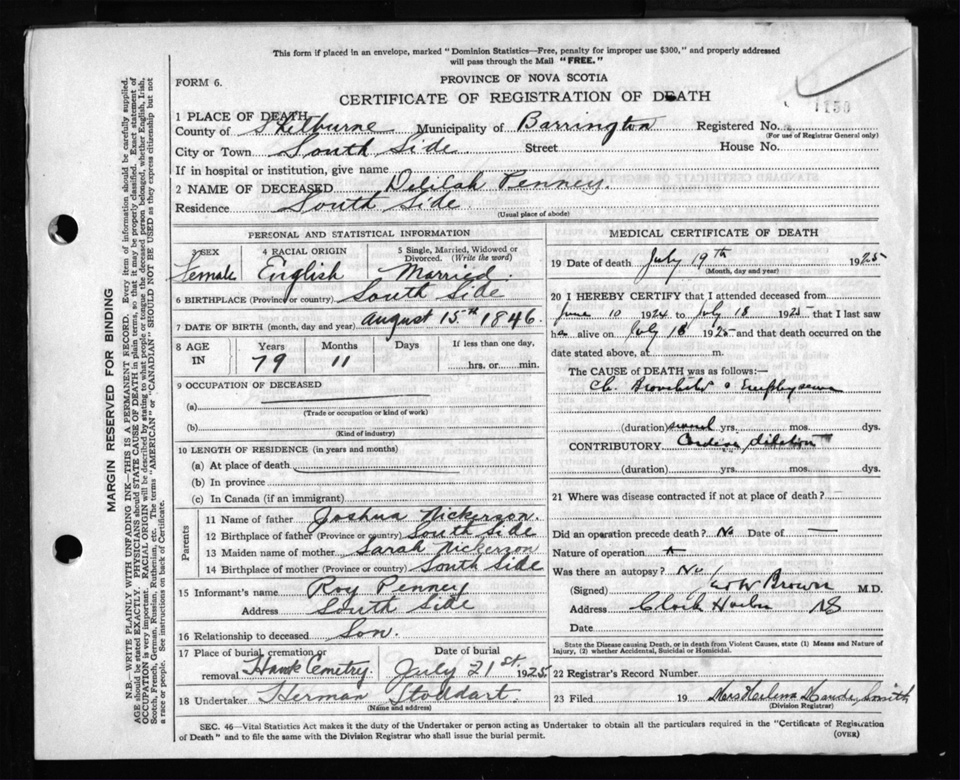 This form if placed in an envelope, marked "Dominion Statistics—Free, penalty for improper use $300," and properly addressed
will pass through the Mail "FREE."
FORM 6.
PROVINCE OF NOVA SCOTIA
CERTIFICATE OF REGISTRATION OF DEATH
1 PLACE OF DEATH
County of Shelburne Municipality of Barrington Registered No.
(For use of Registrar General only)
City or Town South Side Street House No.
If in hospital or institution, give name
2 NAME OF DECEASED Delilah Penney.
Residence South Side
(Usual place of abode)
PERSONAL AND STATISTICAL INFORMATION
3 SEX 4 RACIAL ORIGIN 5 Single, Married, Widowed or
Divorced. (Write the word)
Female English Married.
6 BIRTHPLACE (Province or country) South Side
7 DATE OF BIRTH (month, day and year) August 15th 1846.
8 AGE IN Years Months Days If less than one day,
79 11 hrs. or min.
9 OCCUPATION OF DECEASED
(a)
(Trade or occupation or kind of work)
(b)
(Kind of industry)
10 LENGTH OF RESIDENCE (in years and months)
(a) At place of death
(b) In province
(c) In Canada (if an immigrant)
Parents
11 Name of father Joshua Nickerson.
12 Birthplace of father (Province or country) South Side
13 Maiden name of mother Sarah Nickerson
14 Birthplace of mother (Province or country) South Side
15 Informant's name Roy Penney
Address South Side
16 Relationship to deceased Son.
17 Place of burial, cremation or Date of burial
removal Hawk Cemetry. July 21st 1925
18 Undertaker Herman Stoddart.
(Name and address)
MEDICAL CERTIFICATE OF DEATH
19 Date of death July 19th 1925
(Month, day and year)
20 I HEREBY CERTIFY that I attended deceased from
June 10 1924 to July 18 1925 that I last saw
h alive on July 18 1925 and that death occurred on the
date stated above, at m.
The CAUSE OF DEATH was as follows:—
Ch. Bronchitis & Emphysema
(duration) several yrs. mos. dys.
CONTRIBUTORY Cardiac dilation
(duration) yrs. mos. dys.
21 Where was disease contracted if not at place of death?
Did an operation precede death? No Date of
Nature of operation
Was there an autopsy? No
(Signed) Brown M.D.
Address Clark Harbor NS
Date
State the Disease causing Death, or in death from Violent Causes, state (1) Means and Nature of
Injury, (2) whether Accidental, Suicidal or Homicidal.
22 Registrar's Record Number
23 Filed 19 Mrs Smith
(Division Registrar)
SEC. 46—Vital Statistics Act makes it the duty of the Undertaker or person acting as Undertaker to obtain all the particulars required in the "Certificate of Registration
of Death" and to file the same with the Division Registrar who shall issue the burial permit. (OVER)
MARGIN RESERVED FOR BINDING
N.B.—WRITE PLAINLY WITH UNFADING INK—THIS IS A PERMANENT RECORD. Every item of information should be carefully supplied.
AGE should be stated EXACTLY. PHYSICIANS should STATE CAUSE OF DEATH in plain terms, so that it may be properly classified. Exact statement of
OCCUPATION is very important. RACIAL ORIGIN will be described by stating to what people or tongue the deceased person belonged, whether English, Irish,
Scotch, French, German, Russian, Ruthenian, etc. The terms "AMERICAN" or "CANADIAN" SHOULD NOT BE USED as they express citizenship but not
a race or people. See instructions on back of Certificate.